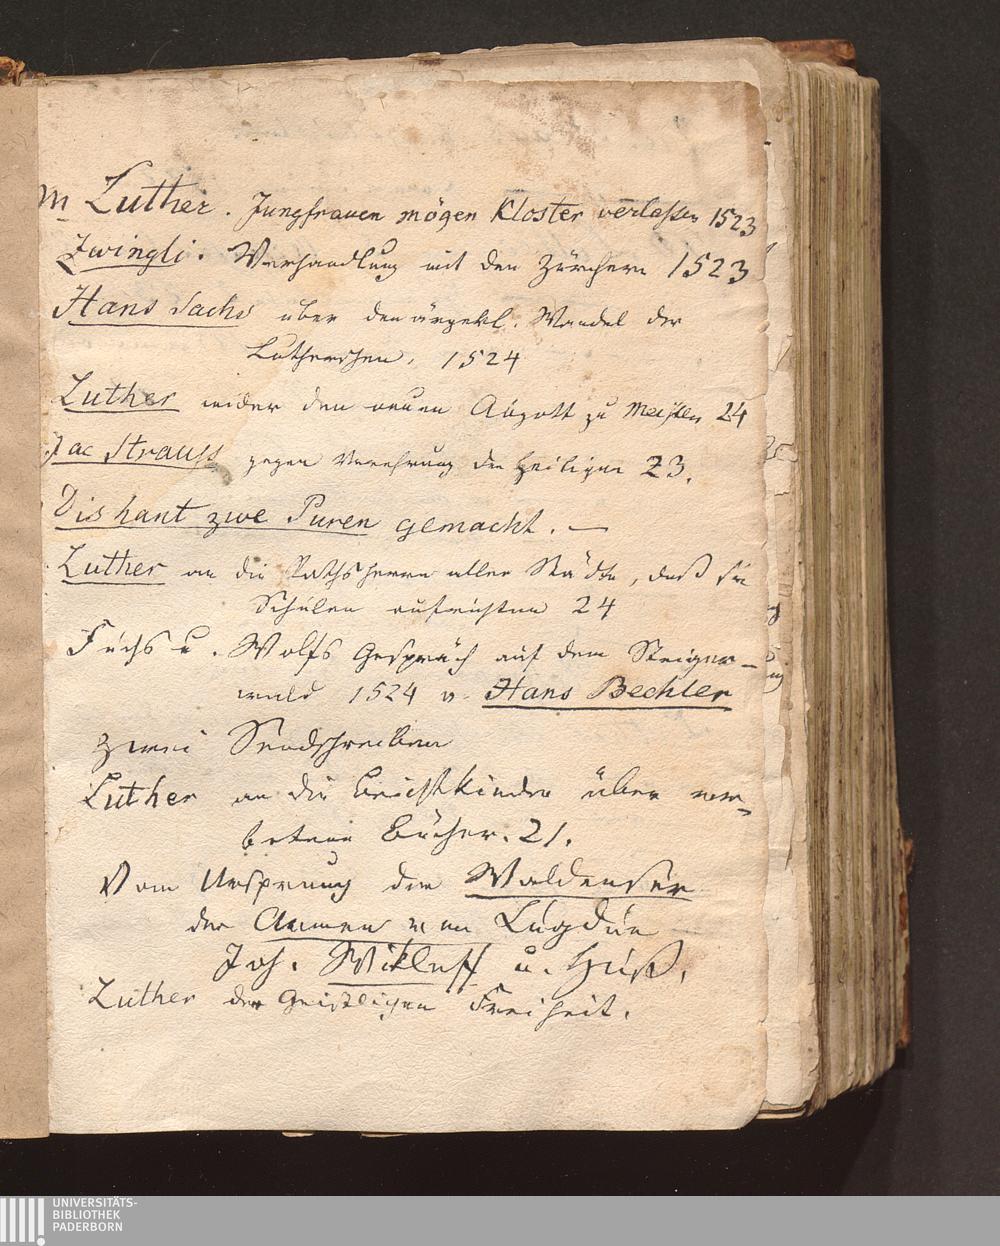 M Luther. Jungfrauen mögen Kloster verlassen 1523
Zwingli. Verhandlung mit den Zürchern 1523
Hans Sachs über den ärgerl. Wandel der
Lutherschen, 1524
Luther wider den neuen Abgott zu Meissen 24
Jac Strauss gegen Verehrung der Heiligen 23.
Dis hant zwe Puren gemacht. —
Luther an die Rathsherrn aller Städte, daß sie
Schulen aufrichten 24
Fuchs u. Wolfs Gespräch auf dem Steiger-
wald 1524 v. Hans Bechler
Zwei Sendschreiben
Luther an die Beichtkinder über ver-
botene Bücher. 21.
Vom Ursprung der Waldenser
der Armen von Lugdun
Joh. Wikleff u. Huß.
Luther der Geistligen Freiheit.
UNIVERSITÄTS-
BIBLIOTHEK
PADERBORN